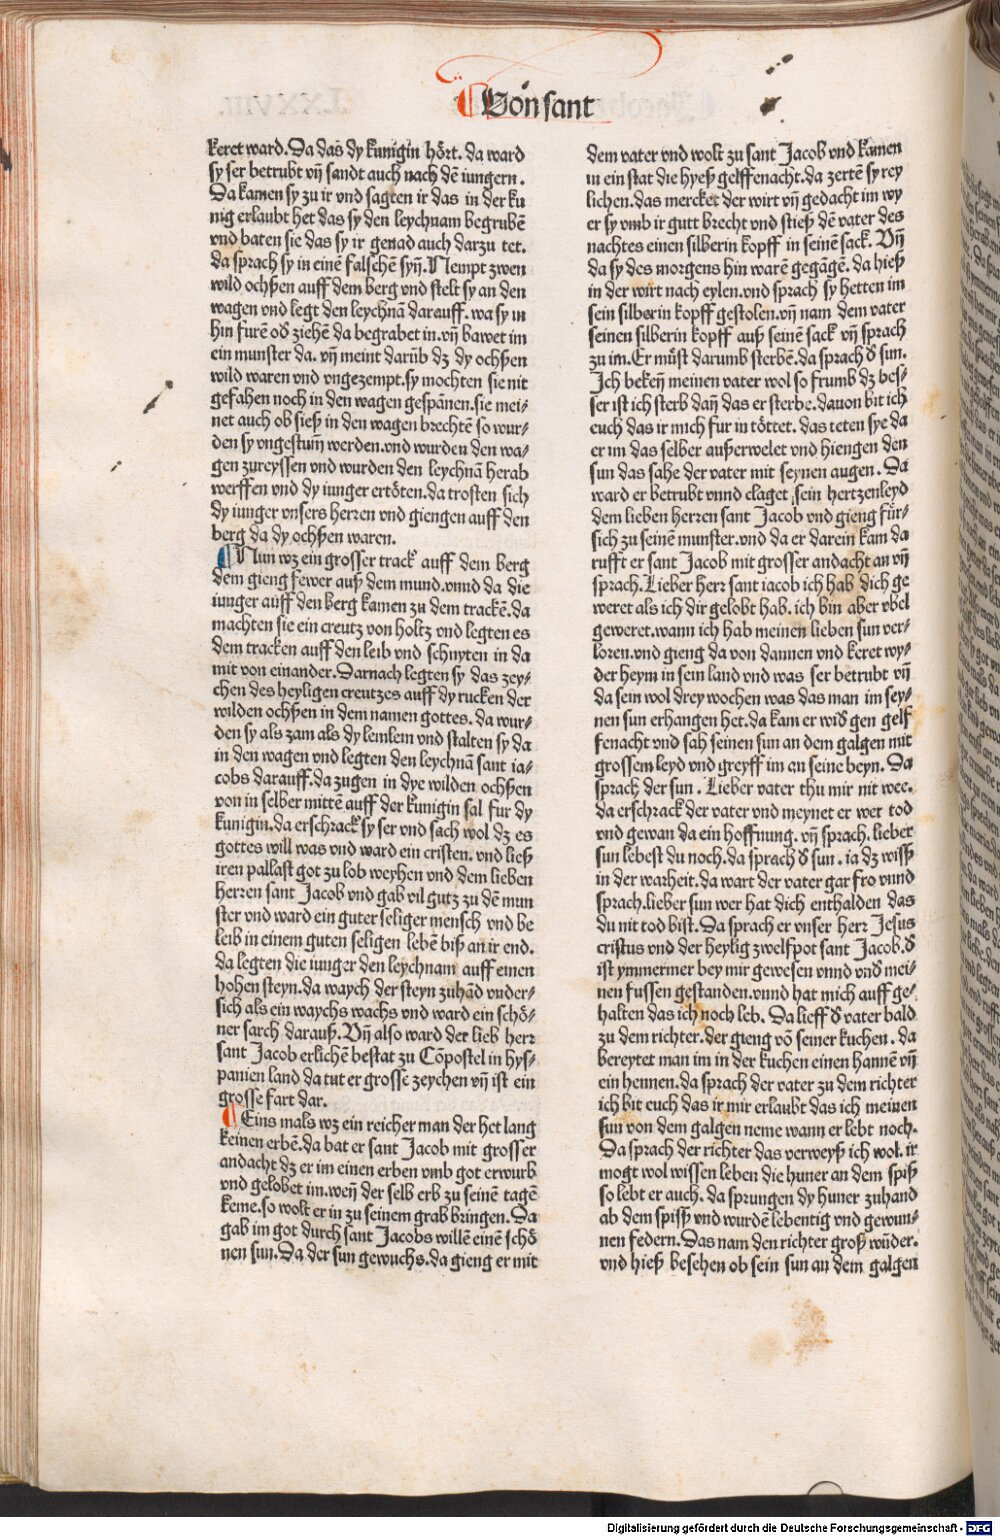 Von sant
keret ward. Da das dy kunigin hört. da ward
sy ser betrubt vñ sandt auch nach dē iungern.
Da kamen sy zu ir vnd sagten ir das in der ku
nig erlaubt het das sy den leychnam begrubē
vnd baten sie das sy ir genad auch darzu tet.
da sprach sy in einē falschē syñ. Nempt zwen
wild ochßen auff dem berg vnd stelt sy an den
wagen vnd legt den leychnā darauff. wa sy in
hin furē oď ziehē da begrabet in. vñ bawet im
ein munster da. vñ meint darūb dz dy ochßen
wild waren vnd vngezempt. sy mochten sie nit
gefahen noch in den wagen gespānen. sie mei⸗
net auch ob sieß in den wagen brechtē so wur⸗
den sy vngestum̄ werden. vnd wurden den wa⸗
gen zureyssen vnd wurden den leychnā herab
werffen vnd dy iunger ertöten. da trosten sich
dy iunger vnsers herren vnd giengen auff den
berg da dy ochßen waren.
Nun wz ein grosser track auff dem berg
dem gieng fewer auß dem mund. vnnd da die
iunger auff den berg kamen zu dem trackē. da
machten sie ein creutz von holtz vnd legten es
dem tracken auff den leib vnd schnyten in da
mit von einander. Darnach legten sy das zey⸗
chen des heyligen creutzes auff dy rucken der
wilden ochßen in dem namen gottes. da wur⸗
den sy als zam als dy lemlein vnd stalten sy da
in den wagen vnd legten den leychnā sant ia⸗
cobs darauff. da zugen in dye wilden ochßen
von in selber mittē auff der kunigin sal fur dy
kunigin. da erschrack sy ser vnd sach wol dz es
gottes will was vnd ward ein cristen. vnd ließ
iren pallast got zu lob weyhen vnd dem lieben
herren sant Jacob vnd gab vil gutz zu dē mun
ster vnd ward ein guter seliger mensch vnd be
leib in einem guten seligen lebē biß an ir end.
da legten die iunger den leychnam auff einen
hohen steyn. da waych der steyn zuhād vnder⸗
sich als ein waychs wachs vnd ward ein schö⸗
ner sarch darauß. Vñ also ward der lieb herr
sant Jacob erlichē bestat zu Cōpostel in hys⸗
panien land da tut er grosse zeychen vñ ist ein
grosse fart dar.
Eins mals wz ein reicher man der het lang
keinen erbē. da bat er sant Jacob mit grosser
andacht dz er im einen erben vmb got erwurb
vnd gelobet im. weñ der selb erb zu seinē tagē
keme. so wolt er in zu seinem grab bringen. Da
gab im got durch sant Jacobs willē einē schö
nen sun. Da der sun gewuchs. da gieng er mit
dem vater vnd wolt zu sant Jacob vnd kamen
in ein stat die hyeß gelffenacht. da zertē sy rey
lichen. das mercket der wirt vñ gedacht im wy
er sy vmb ir gutt brecht vnd stieß dē vater des
nachtes einen silberin kopff in seinē sack. Vñ
da sy des morgens hin warē gegāgē. da hieß
in der wirt nach eylen. vnd sprach sy hetten im
sein silberin kopff gestolen. vñ nam dem vater
seinen silberin kopff auß seinē sack vñ sprach
zu im. Er můst darumb sterbē. da sprach ď sun.
Ich bekeñ meinen vater wol so frumb dz bes⸗
ser ist ich sterb dañ das er sterbe. dauon bit ich
euch das ir mich fur in töttet. das teten sye da
er im das selber außerwelet vnd hiengen den
sun das sahe der vater mit seynen augen. Da
ward er betrubt vnnd claget sein hertzenleyd
dem lieben herren sant Jacob vnd gieng für⸗
sich zu seinē munster. vnd da er darein kam da
rufft er sant Jacob mit grosser andacht an vñ
sprach. Lieber herr sant iacob ich hab dich ge
weret als ich dir gelobt hab. ich bin aber vbel
geweret. wann ich hab meinen lieben sun ver⸗
loren. vnd gieng da von dannen vnd keret wy⸗
der heym in sein land vnd was ser betrubt vñ
da sein wol drey wochen was das man im sey⸗
nen sun erhangen het. da kam er wiď gen gelf
fenacht vnd sah seinen sun an dem galgen mit
grossem leyd vnd greyff im an seine beyn. Da
sprach der sun. Lieber vater thu mir nit wee.
da erschrack der vater vnd meynet er wer tod
vnd gewan da ein hoffnung. vñ sprach. lieber
sun lebest du noch. da sprach ď sun. ia dz wiß
in der warheit. da wart der vater gar fro vnnd
sprach. lieber sun wer hat dich enthalden das
du nit tod bist. Da sprach er vnser herr Jesus
cristus vnd der heylig zwelfpot sant Jacob. ď
ist ymmermer bey mir gewesen vnnd vnď mei⸗
nen fussen gestanden. vnnd hat mich auff ge⸗
halten das ich noch leb. Da lieff ď vater bald
zu dem richter. der gieng vō seiner kuchen. da
bereytet man im in der kuchen einen hannē vñ
ein hennen. da sprach der vater zu dem richter
ich bit euch das ir mir erlaubt das ich meinen
sun von dem galgen neme wann er lebt noch.
Da sprach der richter das verweyß ich wol. ir
mogt wol wissen leben die huner an dem spiß
so lebt er auch. da sprungen dy huner zuhand
ab dem spisß vnd wurdē lebentig vnd gewun⸗
nen federn. Das nam den richter groß wūder.
vnd hieß besehen ob sein sun an dem galgen
Digitalisierung gefördert durch die Deutsche Forschungsgemeinschaft - DFG